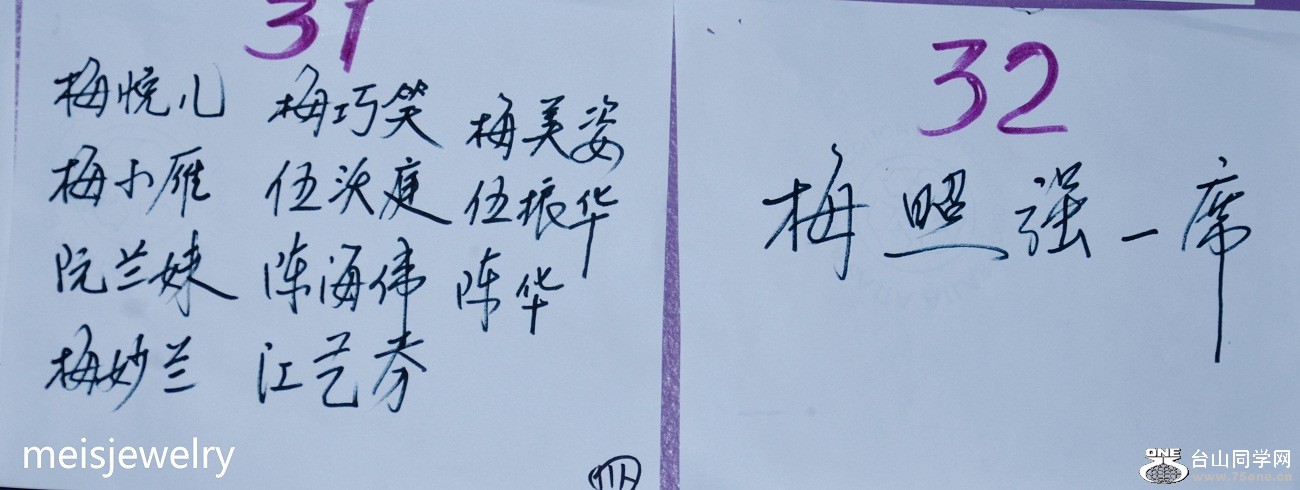 31
梅悦儿 梅巧笑 梅美姿
梅小雁 伍洪庭 伍振华
阮兰妹 陈海伟 陈华
梅妙兰 江艺芬
32
梅照强一席
meisjewelry
ONE 台山同学网
www.75one.cn